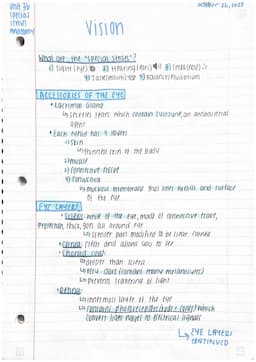 Unit 3b
special
senses
Anatomy
October 26, 2023
Vision
What are the "special senses"?
1) Sight (eye) 2) Hearing (ears) 3) Smell (nose)
4) Taste (mouth) 5) Balance/Equilibrium
ACCESSORIES OF THE EYE
• Lacrimal Gland
↳ secretes tears which contain lysozyme, an antibacterial
agent
• Each eyelid has 4 layers
1) Skin
↳ thinnest skin of the body
2) muscle
3) Connective tissue
4) Conjunctiva
↳ mucous membrane that lines eyelids and surface
of the eye
EYE LAYERS
• Sclera: white of the eye, made of connective tissue,
protection, thick, goes all around eye
↳ anterior part modified to be clear cornea
• Cornea: clear and allows you to see
• Choroid coat:
↳ deeper than sclera
↳ very dark (contains many melanocytes)
↳ prevents scattering of light
• Retina:
↳ innermost layer of the eye
↳ contains photoreceptors which
convert light energy to electrical signals
↳ EYE LAYERS
CONTINUED